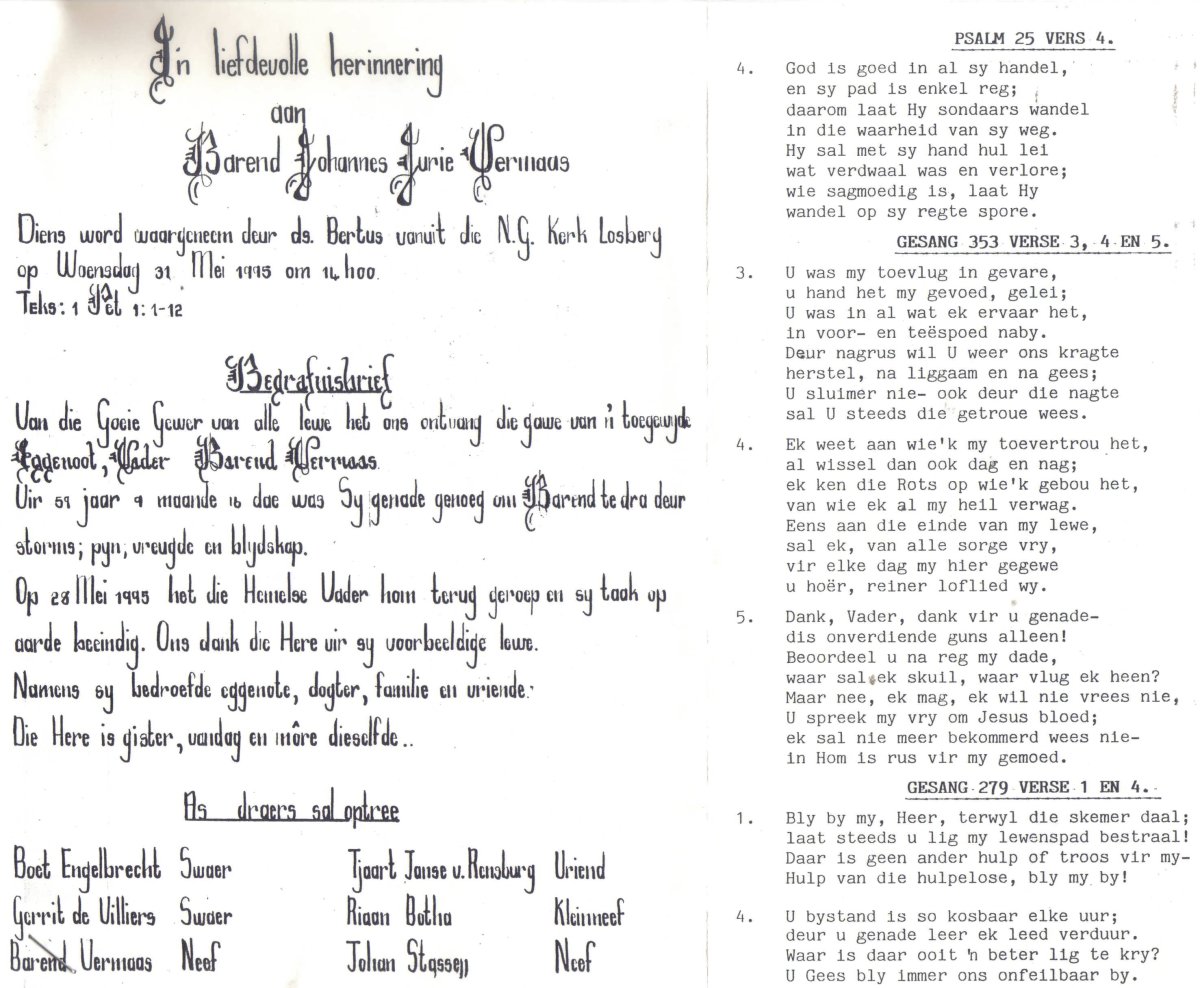 In liefdevolle herinnering
aan
Barend Johannes Jurie Vermaas
Diens word waargeneem deur ds. Bertus vanuit die N.G. Kerk Losberg
op Woensdag 31 Mei 1995 om 14h00.
Teks: 1 Pet 1: 1-12
Begrafnisbrief
Van die Goeie Gewer van alle lewe het ons ontvang die gawe van 'n toegewyde
Eggenoot, Vader Barend Vermaas.
Vir 59 jaar 9 maande 16 dae was Sy genade genoeg om Barend te dra deur
storms; pyn; vreugde en blydskap.
Op 28 Mei 1995 het die Hemelse Vader hom terug geroep en sy taak op
aarde beeindig. Ons dank die Here vir sy voorbeeldige lewe.
Namens sy bedroefde eggenote, dogter, familie en vriende.
Die Here is gister, vandag en môre dieselfde..
As draers sal optree
Boet Engelbrecht Swaer Tjaart Janse v. Rensburg Vriend
Gerrit de Villiers Swaer Riaan Botha Kleinneef
Barend Vermaas Neef Johan Stassen Neef
PSALM 25 VERS 4.
4. God is goed in al sy handel,
en sy pad is enkel reg;
daarom laat Hy sondaars wandel
in die waarheid van sy weg.
Hy sal met sy hand hul lei
wat verdwaal was en verlore;
wie sagmoedig is, laat Hy
wandel op sy regte spore.
GESANG 353 VERSE 3, 4 EN 5.
3. U was my toevlug in gevare,
u hand het my gevoed, gelei;
U was in al wat ek ervaar het,
in voor- en teëspoed naby.
Deur nagrus wil U weer ons kragte
herstel, na liggaam en na gees;
U sluimer nie- ook deur die nagte
sal U steeds die getroue wees.
4. Ek weet aan wie'k my toevertrou het,
al wissel dan ook dag en nag;
ek ken die Rots op wie'k gebou het,
van wie ek al my heil verwag.
Eens aan die einde van my lewe,
sal ek, van alle sorge vry,
vir elke dag my hier gegewe
u hoër, reiner loflied wy.
5. Dank, Vader, dank vir u genade-
dis onverdiende guns alleen!
Beoordeel u na reg my dade,
waar sal ek skuil, waar vlug ek heen?
Maar nee, ek mag, ek wil nie vrees nie,
U spreek my vry om Jesus bloed;
ek sal nie meer bekommerd wees nie-
in Hom is rus vir my gemoed.
GESANG 279 VERSE 1 EN 4.
1. Bly by my, Heer, terwyl die skemer daal;
laat steeds u lig my lewenspad bestraal!
Daar is geen ander hulp of troos vir my-
Hulp van die hulpelose, bly my by!
4. U bystand is so kosbaar elke uur;
deur u genade leer ek leed verduur.
Waar is daar ooit 'n beter lig te kry?
U Gees bly immer ons onfeilbaar by.